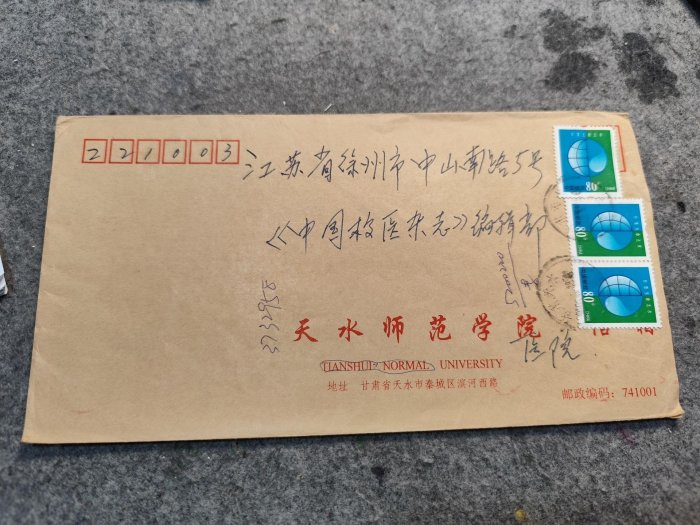 221003
江苏省徐州市中山南路5号
《中国校医杂志》编辑部
3732958
天水师范学院
医院
TIANSHUI NORMAL UNIVERSITY
地址 甘肃省天水市秦城区滨河西路
邮政编码：741001
80
80
80